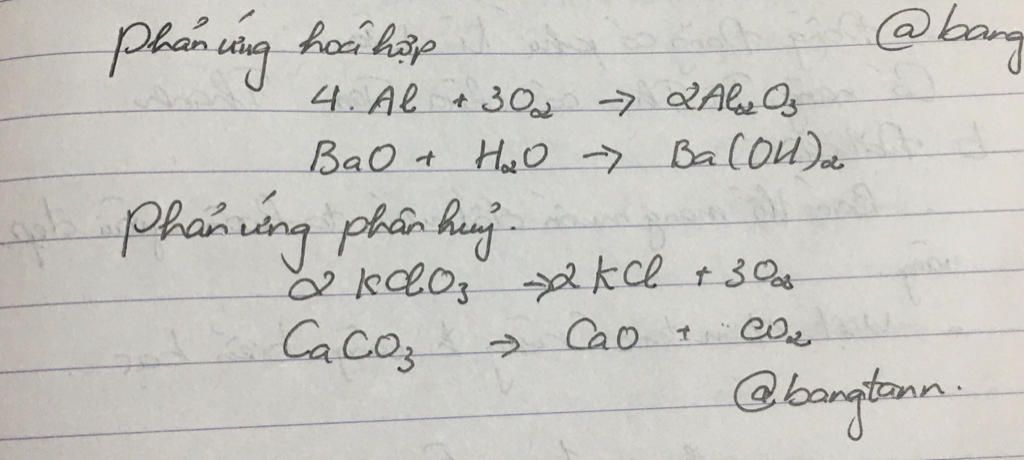 Phản ứng hoá hợp @bang
4. Al + 3O₂ → 2Al₂O₃
BaO + H₂O → Ba(OH)₂
Phản ứng phân huỷ.
2 KClO₃ → 2 KCl + 3O₂
CaCO₃ → CaO + CO₂
@bangtann.